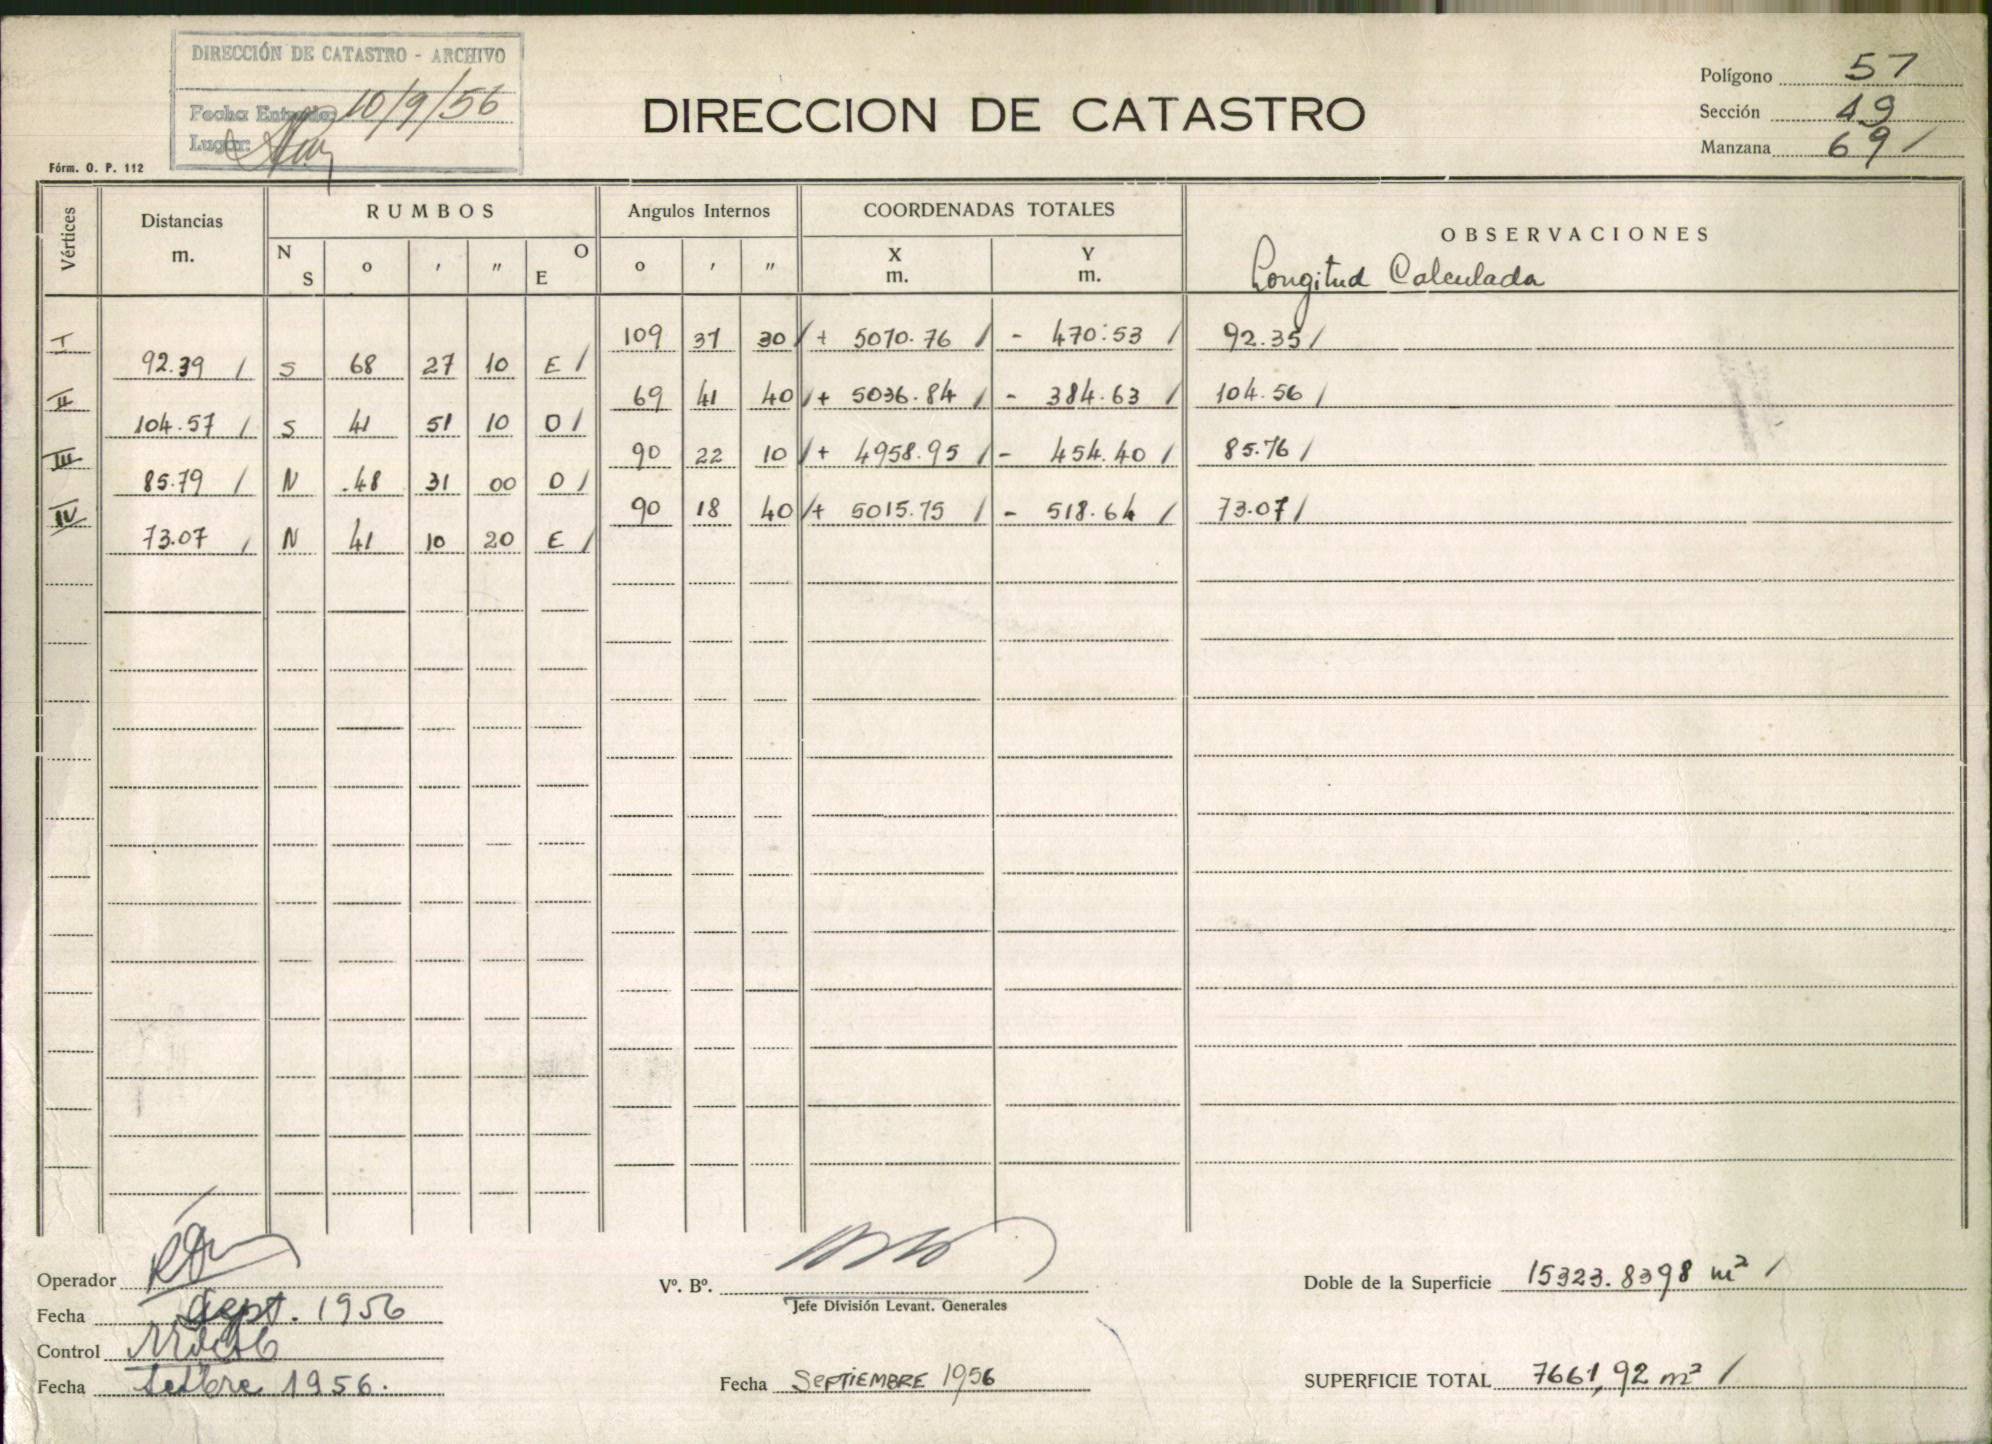 DIRECCIÓN DE CATASTRO - ARCHIVO
Fecha Entrada: 10/9/56
Lugar:
Fórm. O. P. 112
DIRECCION DE CATASTRO
Polígono 57
Sección 49
Manzana 69 /
Vértices Distancias m. RUMBOS Angulos Internos COORDENADAS TOTALES OBSERVACIONES
N S o ' " O E o ' " X m. Y m. Longitud Calculada
I 109 37 30 / + 5070.76 / - 470.53 / 92.35 /
92.39 / S 68 27 10 E /
II 69 41 40 / + 5036.84 / - 384.63 / 104.56 /
104.57 / S 41 51 10 O /
III 90 22 10 / + 4958.95 / - 454.40 / 85.76 /
85.79 / N 48 31 00 O /
IV 90 18 40 / + 5015.75 / - 518.64 / 73.07 /
73.07 / N 41 10 20 E /
Operador
Fecha Sept. 1956
Control
Fecha Setbre 1956.
Vº. Bº.
Jefe División Levant. Generales
Fecha SEPTIEMBRE 1956
Doble de la Superficie 15323.8398 m² /
SUPERFICIE TOTAL 7661,92 m² /